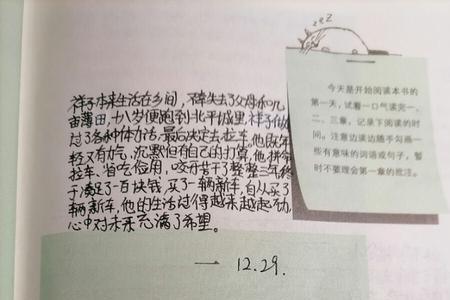 祥子本来生活在乡间，不幸失去了父母和几
亩薄田，十八岁便跑到北平城里。祥子做
过了各种体力活，最后决定去拉车。他既年
轻又有力气，沉默但有自己的打算。他拼命
拉车，省吃俭用，咬牙苦干了整整三年终
于凑足了一百块钱，买了一辆新车，自从买了
辆新车，他的生活过得越来越起劲，
心中对未来充满了希望。
一 12.29.
zzZ
今天是开始阅读本书的
第一天，试着一口气读完一、
二、三章，记录下阅读的时
间。注意边读边随手勾画一
些有意味的词语或句子，暂
时不要理会第一章的批注。